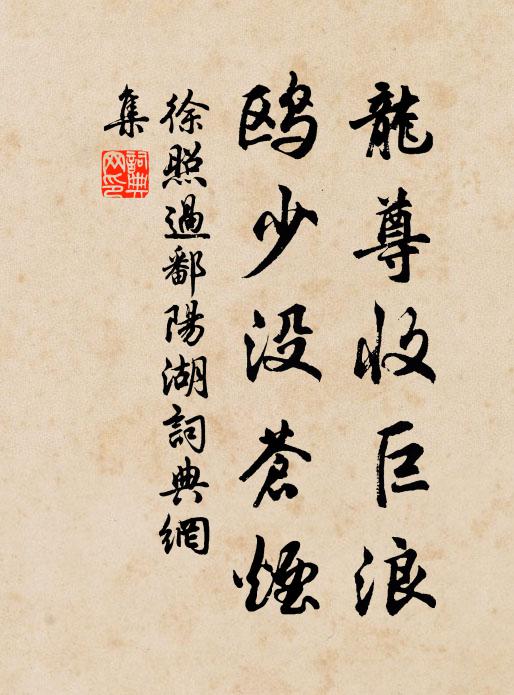 龍尊收巨浪
鸥少没蒼煙
徐照過鄱陽湖詞典網
集
詞典網印